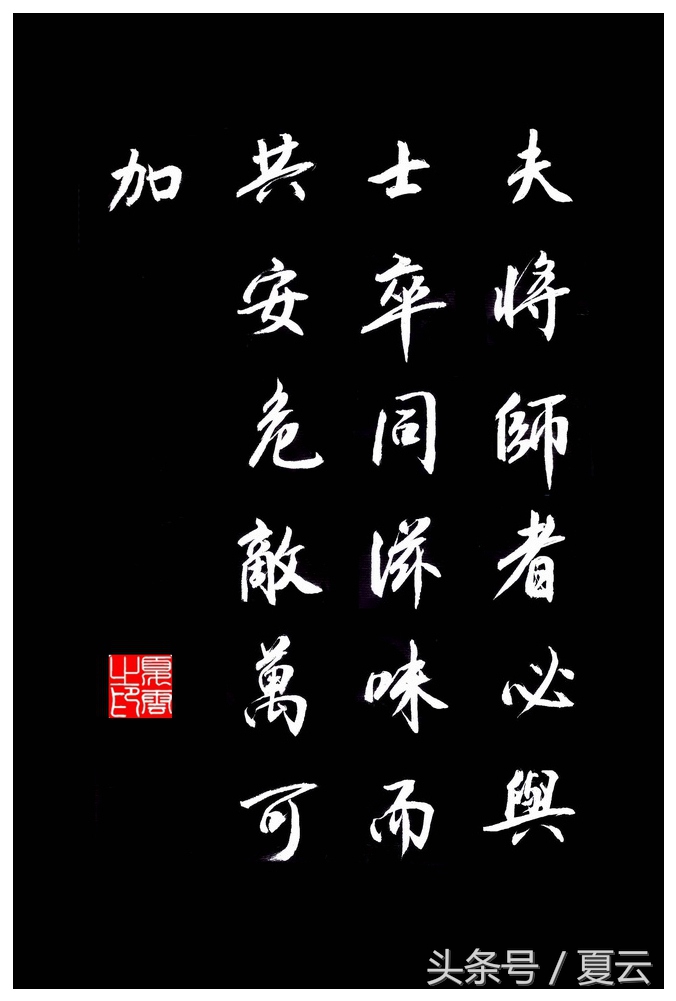 夫將師者必與
士卒同滋味而
共安危敵萬可
加
夏雲之印
头条号 / 夏云